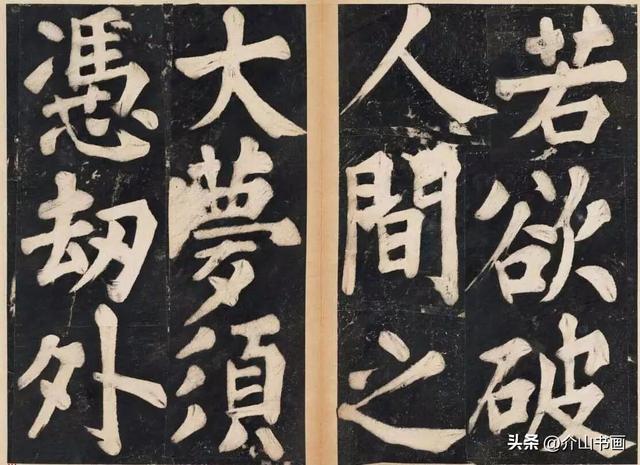 若欲破
人間之
大夢須
憑劫外
头条 @介山书画